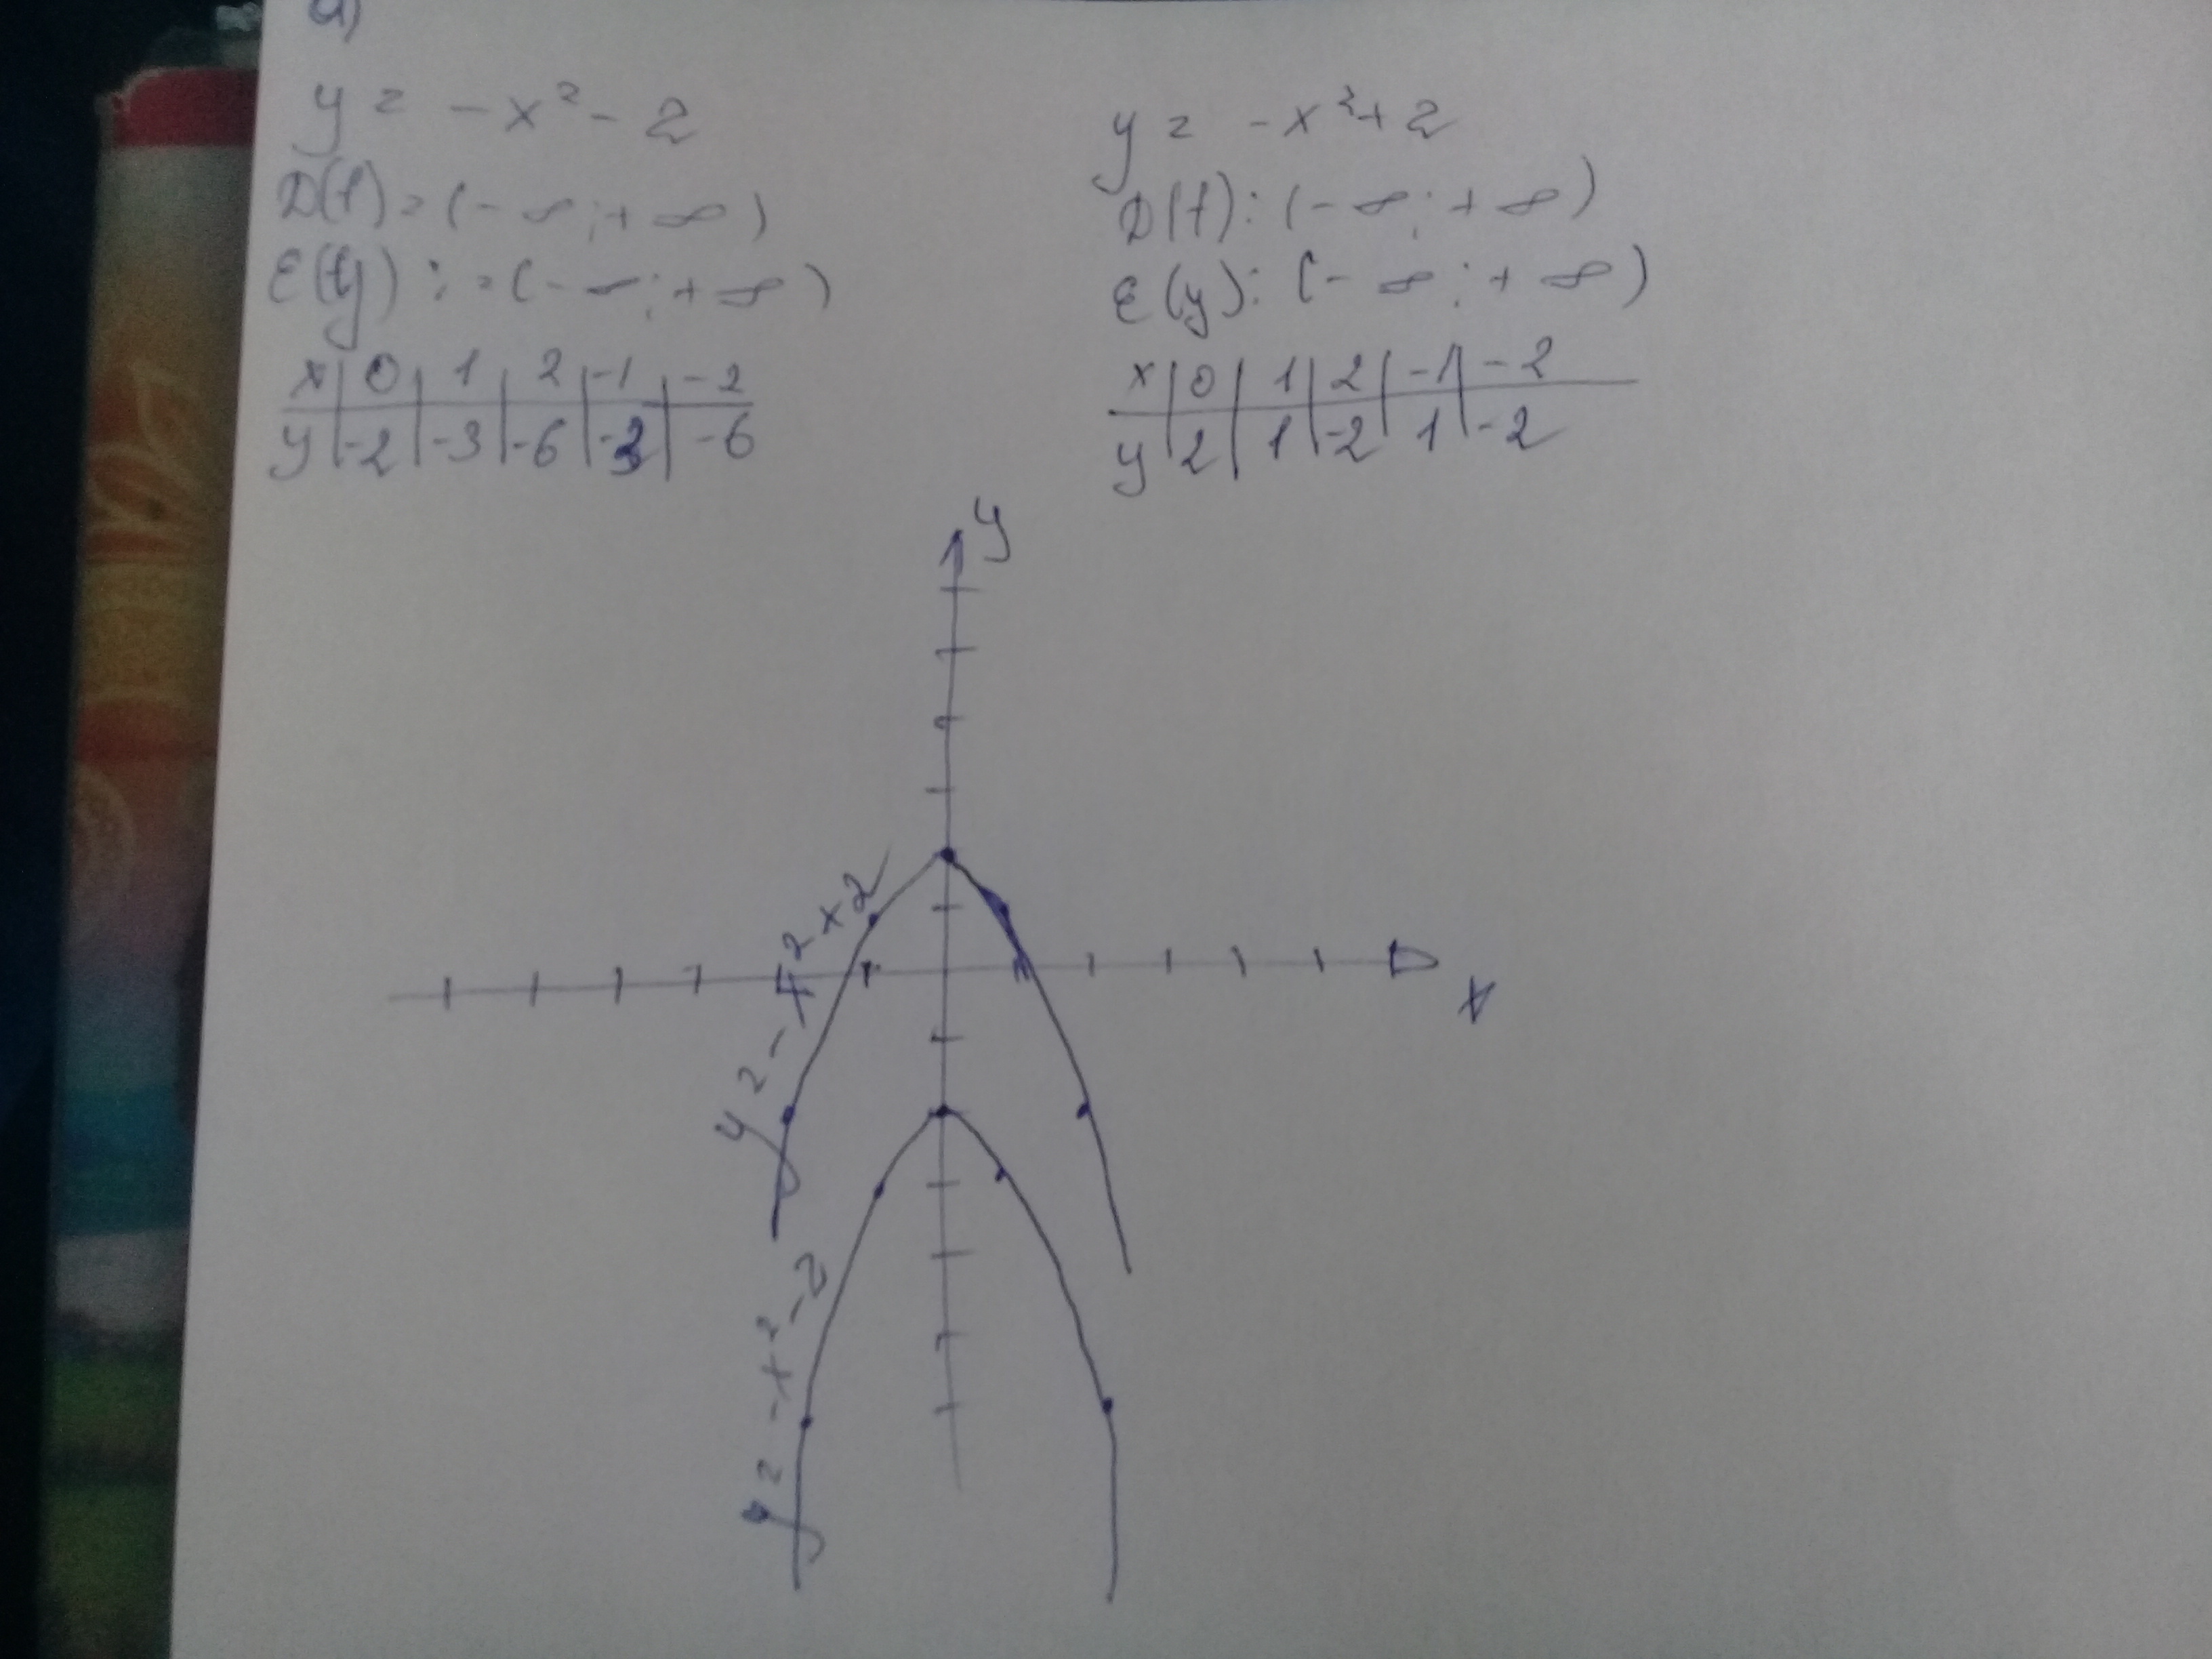 a)
y = -x² - 2
D(f) = (-∞; +∞)
E(y) := (-∞; +∞)
x | 0 | 1 | 2 | -1 | -2
y | -2 | -3 | -6 | -3 | -6
y = -x² + 2
D(f): (-∞; +∞)
E(y): (-∞; +∞)
x | 0 | 1 | 2 | -1 | -2
y | 2 | 1 | -2 | 1 | -2
y
x
y = -x² + 2
y = -x² - 2